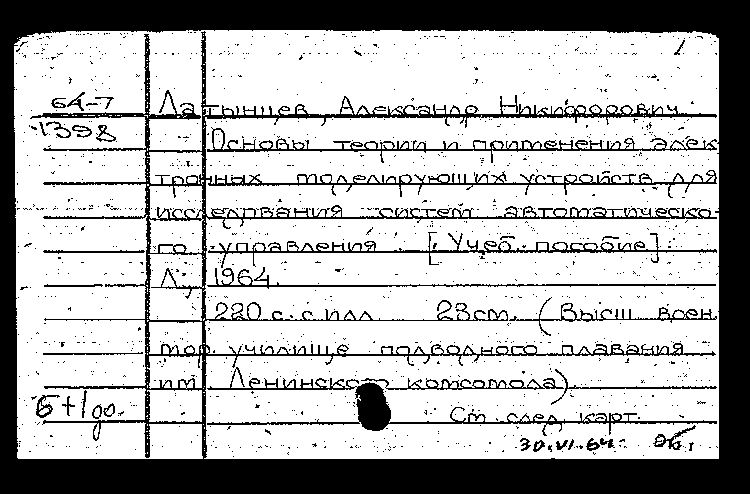 1
64-7 Латынцев, Александр Никифорович.
1398 Основы теории и применения элек
тронных моделирующих устройств для
исследования систем автоматическо-
го управления. [Учеб. пособие].
Л., 1964.
220 с. с илл. 23см. (Высш. воен.
мор. училище подводного плавания
им. Ленинского комсомола).
Б+1до. См. след. карт.
30.VI.64.